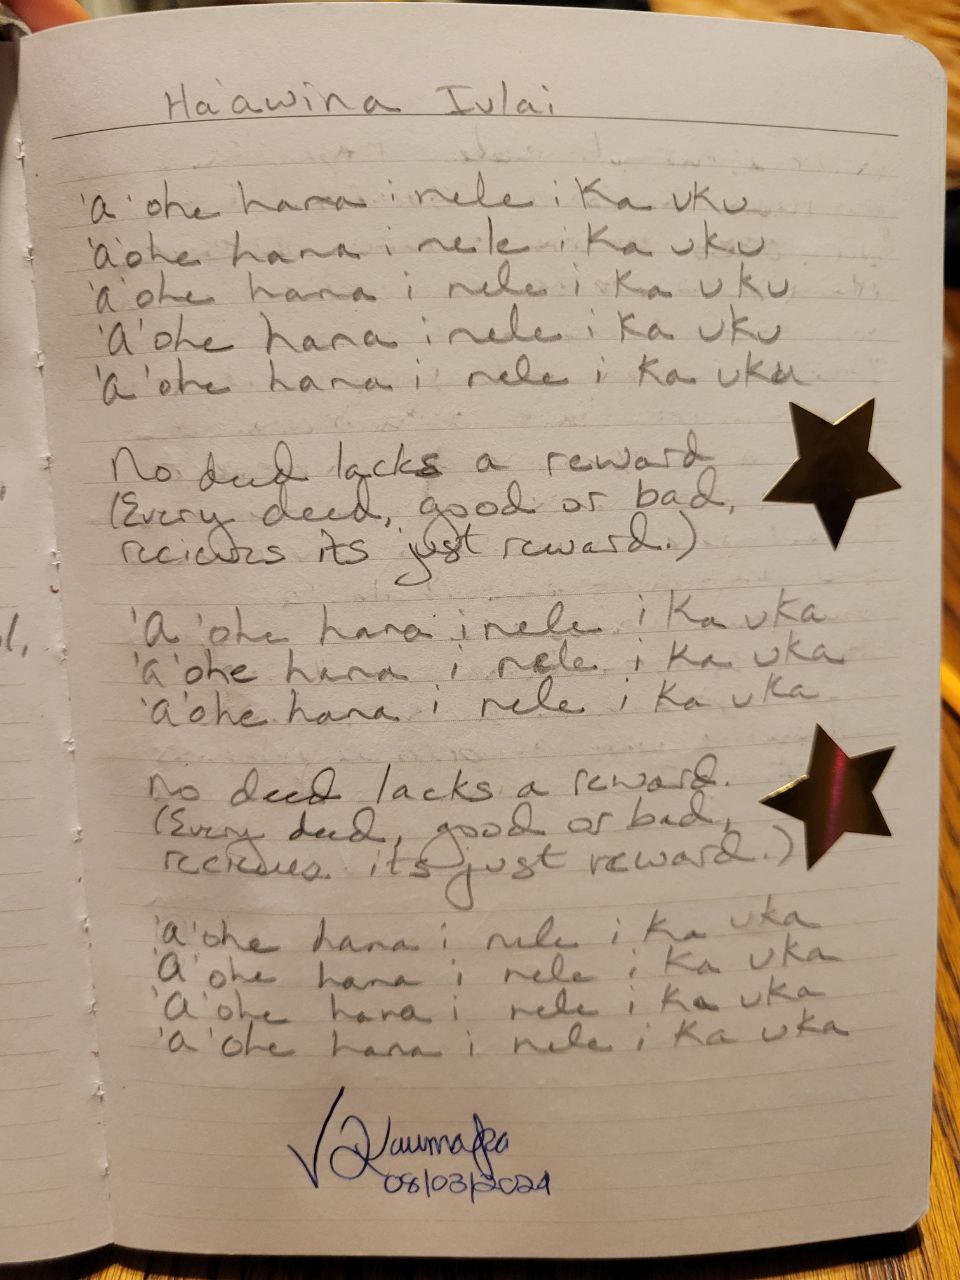 Ha'awina Iulai
'a'ohe hana i nele i ka uku
'a'ohe hana i nele i ka uku
'a'ohe hana i nele i ka uku
'A'ohe hana i nele i ka uku
'a'ohe hana i nele i ka uku
No deed lacks a reward
(Every deed, good or bad,
recieves its just reward.)
'A'ohe hana i nele i ka uka
'a'ohe hana i nele i ka uka
'a'ohe hana i nele i ka uka
No deed lacks a reward.
(Every deed, good or bad,
recieves its just reward.)
'a'ohe hana i nele i ka uka
'A'ohe hana i nele i ka uka
'a'ohe hana i nele i ka uka
'a'ohe hana i nele i ka uka
08/03/2024